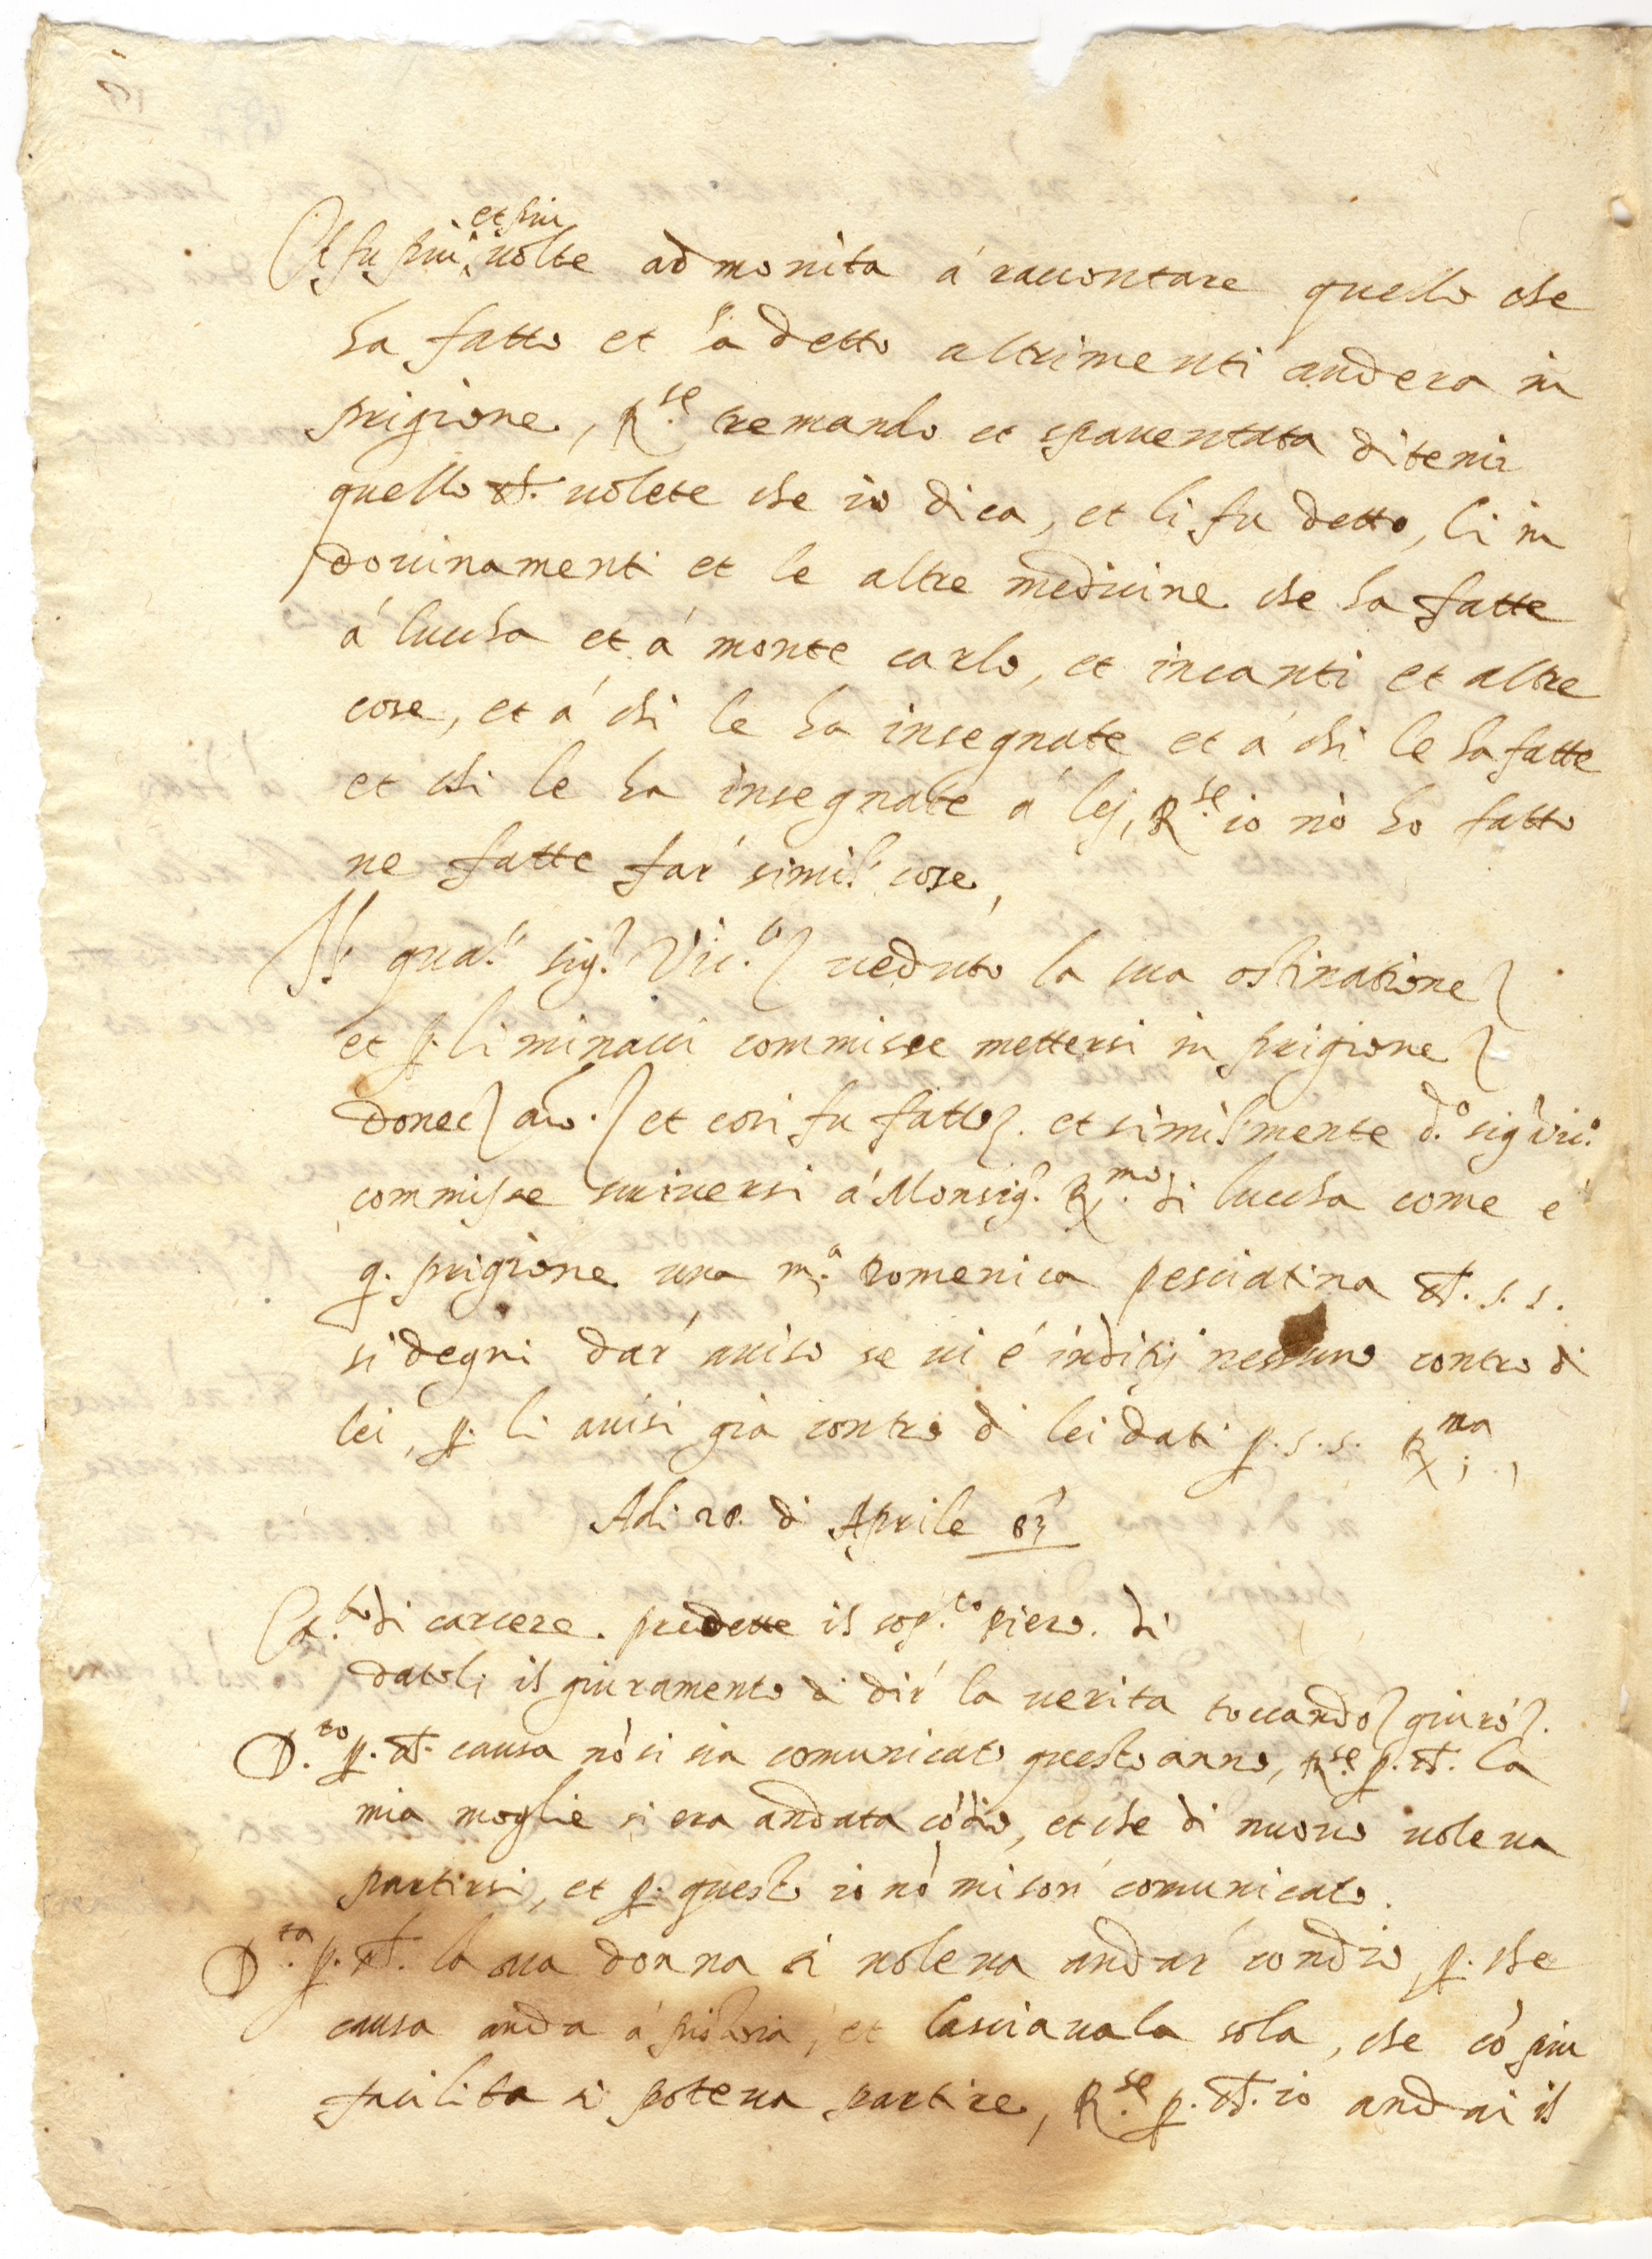 et piu
Et fu piu volte admonita á raccontare quello che
ha fatto et ha detto altrimenti andera in
prigione, R.se tremando et spaventata ditemi
quello ch. volete che io dica, et li fu detto, li in
dovinamenti et le altre medicine che ha fatte
á luccha et á monte carlo, et incanti et altre
cose, et á chi le ha insegnate et á chi le ha fatte
et chi le ha insegnate á lej, R.se io nò ho fatto
ne fatte far' simil' cose,
Il qual' sig.r Vic.o veduto la sua ostinatione
et p. li minacci commisse mettersi in prigione
donec et cosi fu fatto. et simil'mente d.o sig.r vic.o
commisse scriversi á Monsig.r R.mo di luccha come é
q. prigione una m.a Domenica pesciatina ch. s. s.
si degni dar' aviso se vi é inditij nessuno contro di
lei, p. li avisi già contro di lei dati p. s. s. R.ma
Adi 28. di Aprile 83
di carcere. predette il sop.to piero. di
datoli il giuramento di dir' la verita toccando giurò.
D.to p. ch. causa nò si sia comunicato questo anno, R.se p. ch. la
mia moglie si era andata có dio, et che di nuovo voleva
partirsi, et p. questo io nó mi son' comunicato.
D.ta p. ch. la sua donna si voleva andar' con dio, p. che
causa anda á pistoia, et lasciavala sola, che có piu
facilita si poteva partire, R.se p. ch. io andai il